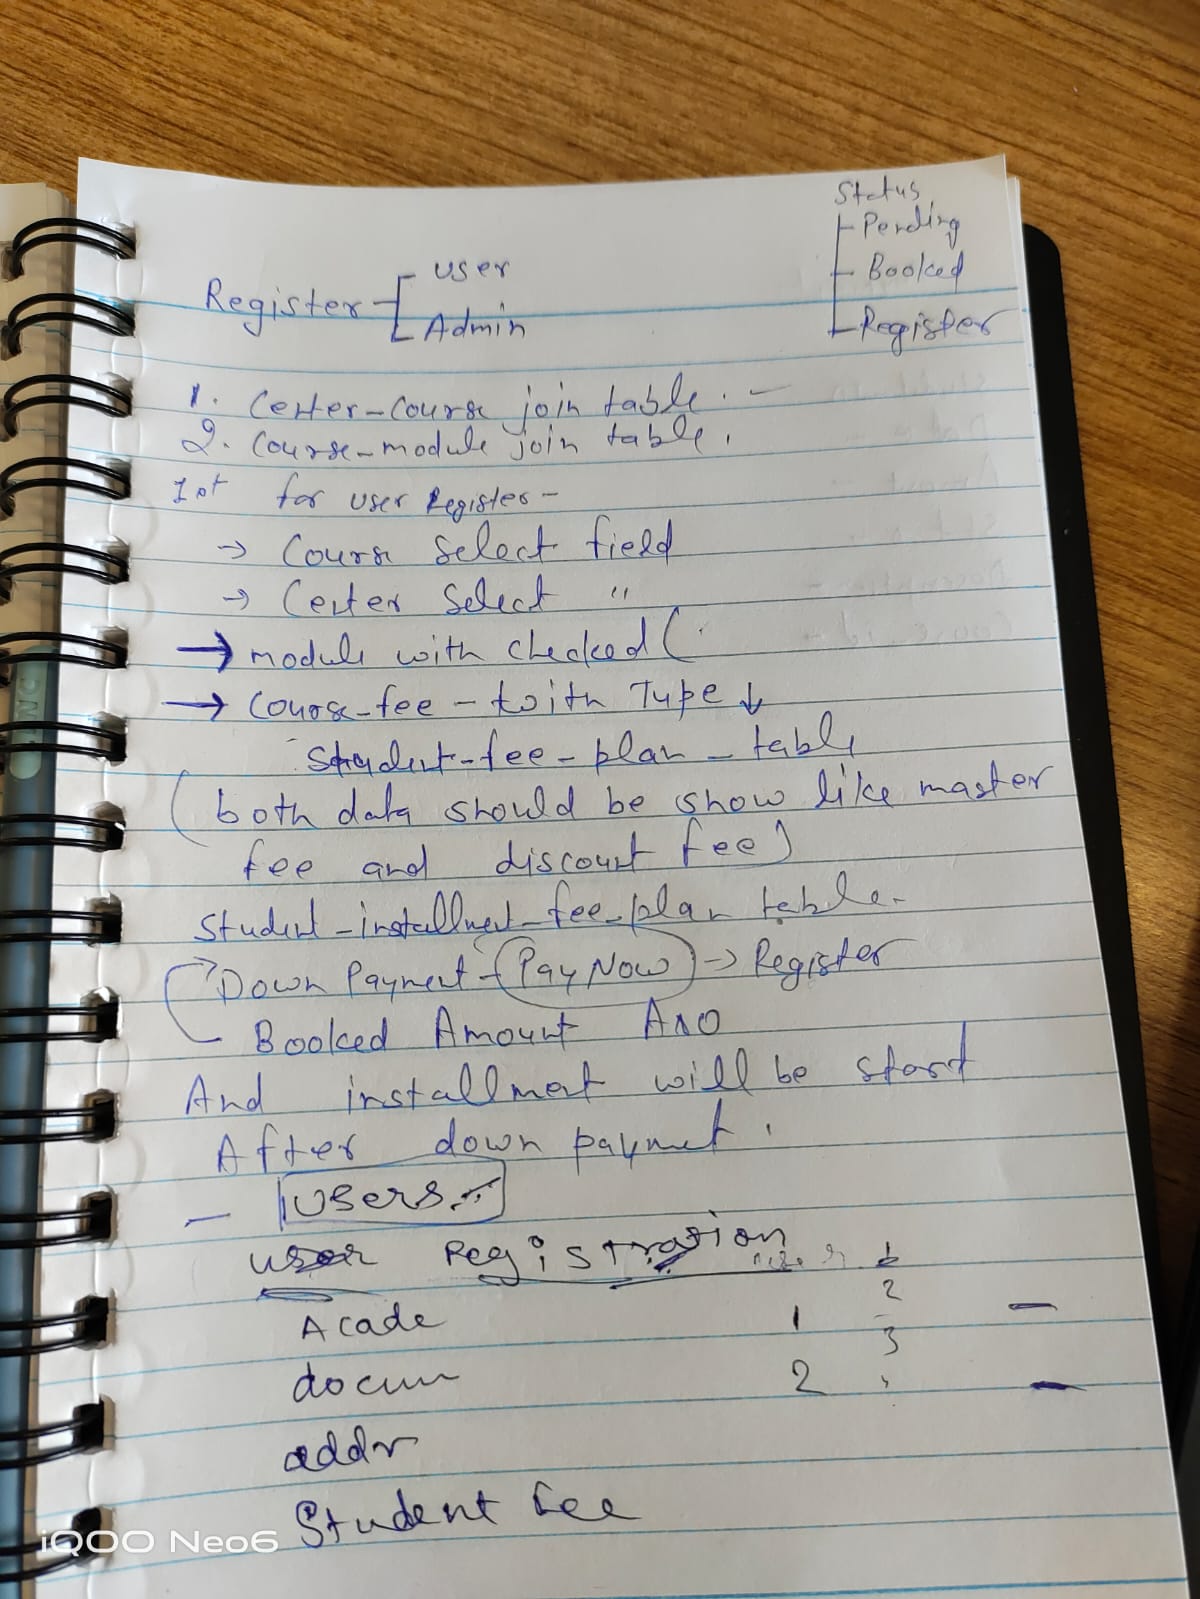 Status
Pending
Booked
Register
Register
user
Admin
1. Center-Course join table. -
2. Course-module join table.
1st for user Register -
→ Course Select field
→ Center Select "
→ module with checked (
→ Course-fee - with Type ↓
Student-fee-plan-table
(both data should be show like master
fee and discount fee)
Student-installment-fee-plan table.
Down Payment - (Pay Now) → Register
Booked Amount
And installment will be start
After down paymet.
- Users
user Registration
2
Acade 1
3
docum 2
addr
Student Fee
iQOO Neo6